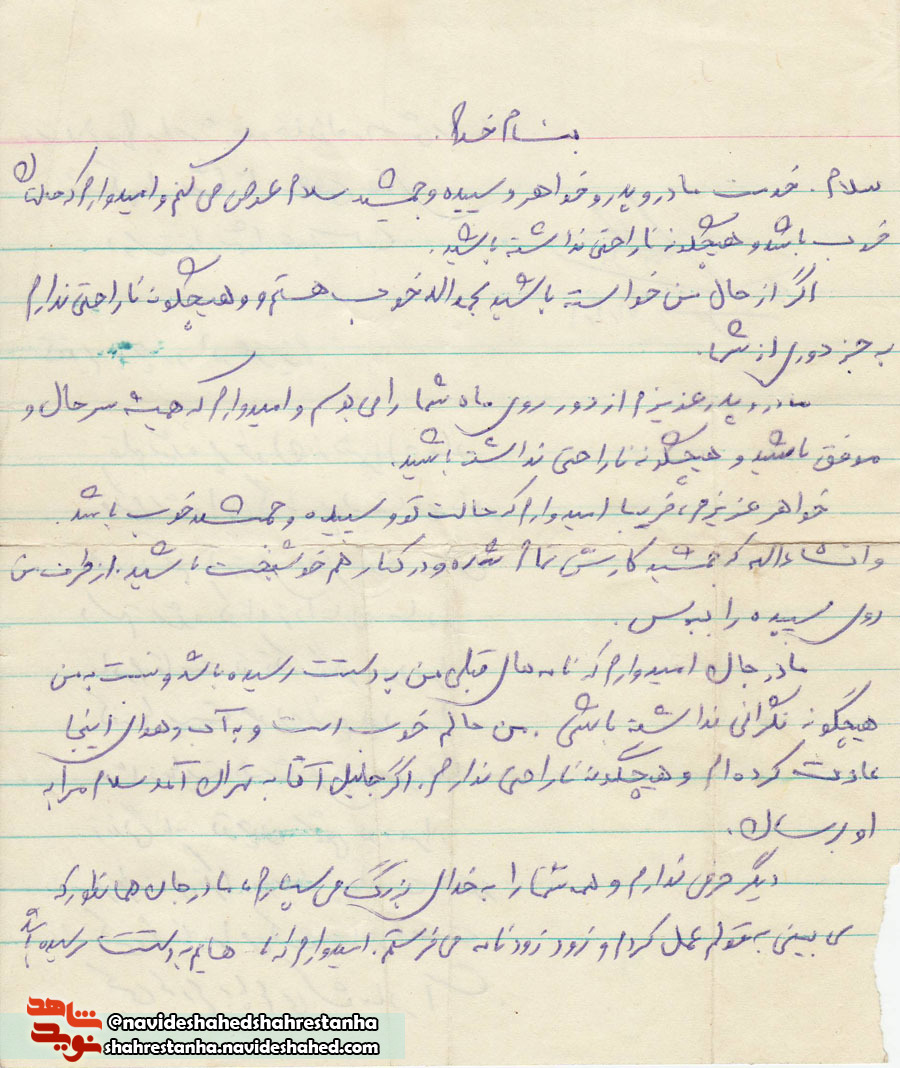 بنام خدا
سلام. خدمت مادر و پدر و خواهر و سپیده و جمشید سلام عرض می کنم و امیدوارم که حالتان
خوب باشد و هیچگونه ناراحتی نداشته باشید.
اگر از حال من خواسته باشید بحمدالله خوب هستم و و هیچگونه ناراحتی ندارم
به جز دوری از شما.
مادر و پدر عزیزم از دور روی ماه شما را می بوسم و امیدوارم که همیشه سرحال و
موفق باشید و هیچگونه ناراحتی نداشته باشید.
خواهر عزیزم، فریبا امیدوارم که حالت تو و سپیده و جمشید خوب باشد.
و انشاءاله که جمشید کارش تمام شده و در کنار هم خوشبخت باشید. از طرف من
روی سپیده را ببوس.
مادر جان امیدوارم که نامه های قبلی من به دستت رسیده باشد و نسبت به من
هیچگونه نگرانی نداشته باشی. من حالم خوب است و به آب و هوای اینجا
عادت کرده ام و هیچگونه ناراحتی ندارم. اگر جلیل آقا به تهران آمد سلام مرا به
او برسان.
دیگر عرضی ندارم و همه شما را به خدای بزرگ می سپارم، مادر جان همانطور که
می بینی به قولم عمل کردم و زود زود نامه می فرستم. امیدوارم که نامه هایم به دستت رسیده باشد
شاهد
نوید
©navideshahedshahrestanha
shahrestanha.navideshahed.com